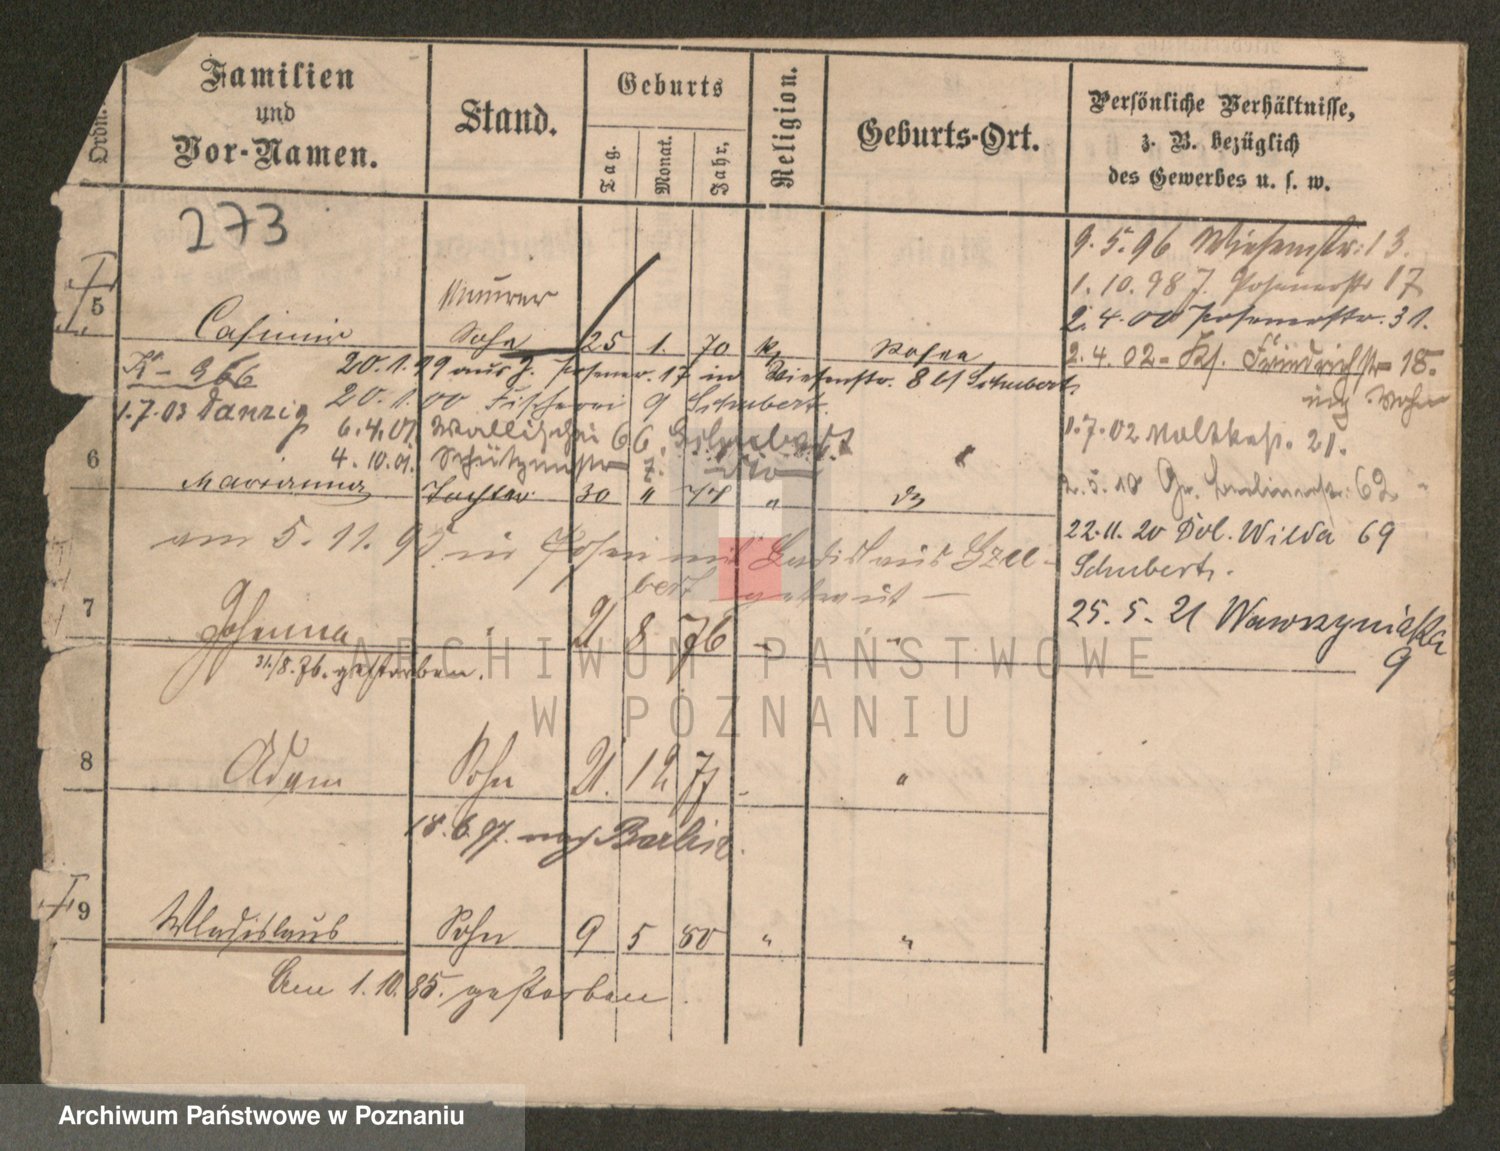 Ordn.
Familien
und
Vor-Namen.
Stand.
Geburts
Tag.
Monat.
Jahr,
Religion.
Geburts-Ort.
Persönliche Verhältnisse,
z. B. bezüglich
des Gewerbes u. s. w.
273
9.5.96 Wiesenstr. 13.
1.10.98 J. Posenerstr 17
2.4.00 Posenerstr. 31.
5
Maurer
Casimir Sohn 25 1. 70 k, Posen
2.4.02 Friedrichstr 18.
K- 966
20.1.99 aus J. Posener. 17 in Wiesenstr. 8 Schubert,
1.7.03 Danzig
20.1.00 Fischerei 9 Schubert.
6.4.01. Wallischei 66
1.7.02 Moltkestr. 21.
4.10.01. Schützenstr 7.
6
Marianna Tochter 30 " 74 "
2.5.18 Gr. 62
am 5.11.95 in Posen mit Ladislaus
22.11.20 Dol. Wilda 69
Schubert.
7
Johanna 21 8 76
25.5.21 Wawrzyniaka
9
31/8.76. gestorben.
8
Adam Sohn 21. 12 77 "
18.6.97. nach Berlin.
9
Wladislaus Sohn 9 5 80 " "
Am 1.10.85. gestorben.
ARCHIWUM PAŃSTWOWE
W POZNANIU
Archiwum Państwowe w Poznaniu